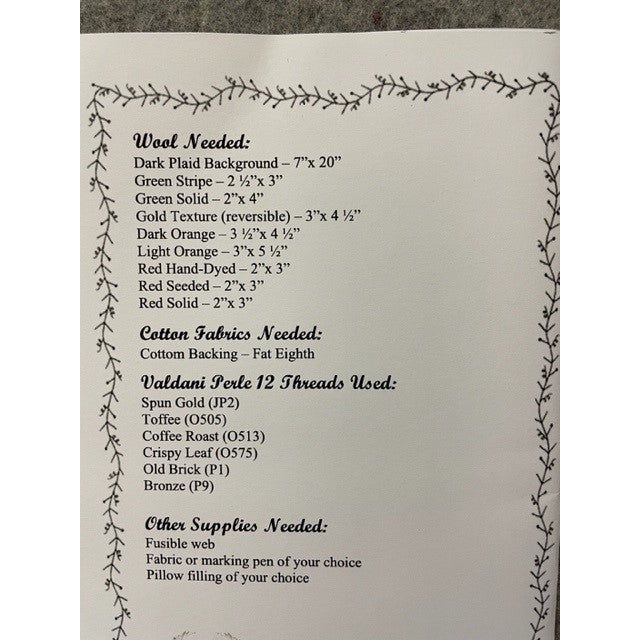 Wool Needed:
Dark Plaid Background – 7”x 20”
Green Stripe – 2 ½”x 3”
Green Solid – 2”x 4”
Gold Texture (reversible) – 3”x 4 ½”
Dark Orange – 3 ½”x 4 ½”
Light Orange – 3”x 5 ½”
Red Hand-Dyed – 2”x 3”
Red Seeded – 2”x 3”
Red Solid – 2”x 3”
Cotton Fabrics Needed:
Cottom Backing – Fat Eighth
Valdani Perle 12 Threads Used:
Spun Gold (JP2)
Toffee (O505)
Coffee Roast (O513)
Crispy Leaf (O575)
Old Brick (P1)
Bronze (P9)
Other Supplies Needed:
Fusible web
Fabric or marking pen of your choice
Pillow filling of your choice